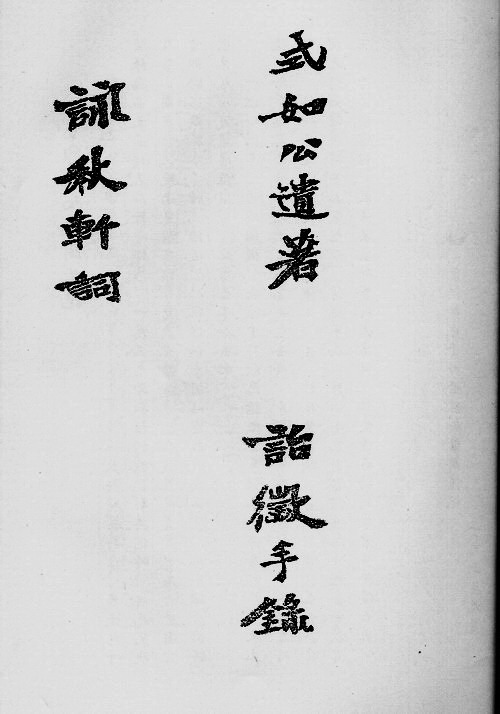 式如公遺著
詒徵手錄
詠秋軒詞